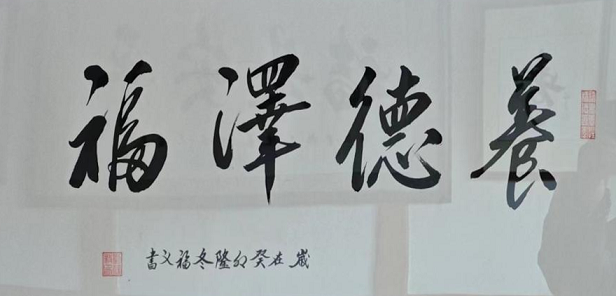 養德澤福
歲在癸卯隆冬福义書